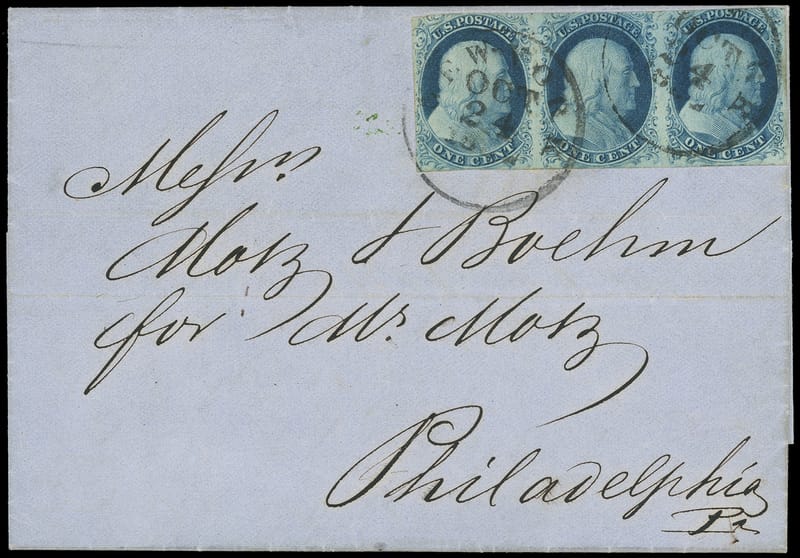 U.S. POSTAGE U.S. POSTAGE U.S. POSTAGE
NEW YORK
OCT
24
ONE CENT ONE CENT ONE CENT
Messrs.
Motz & Boehm
for Mr. Motz
Philadelphia
Pa